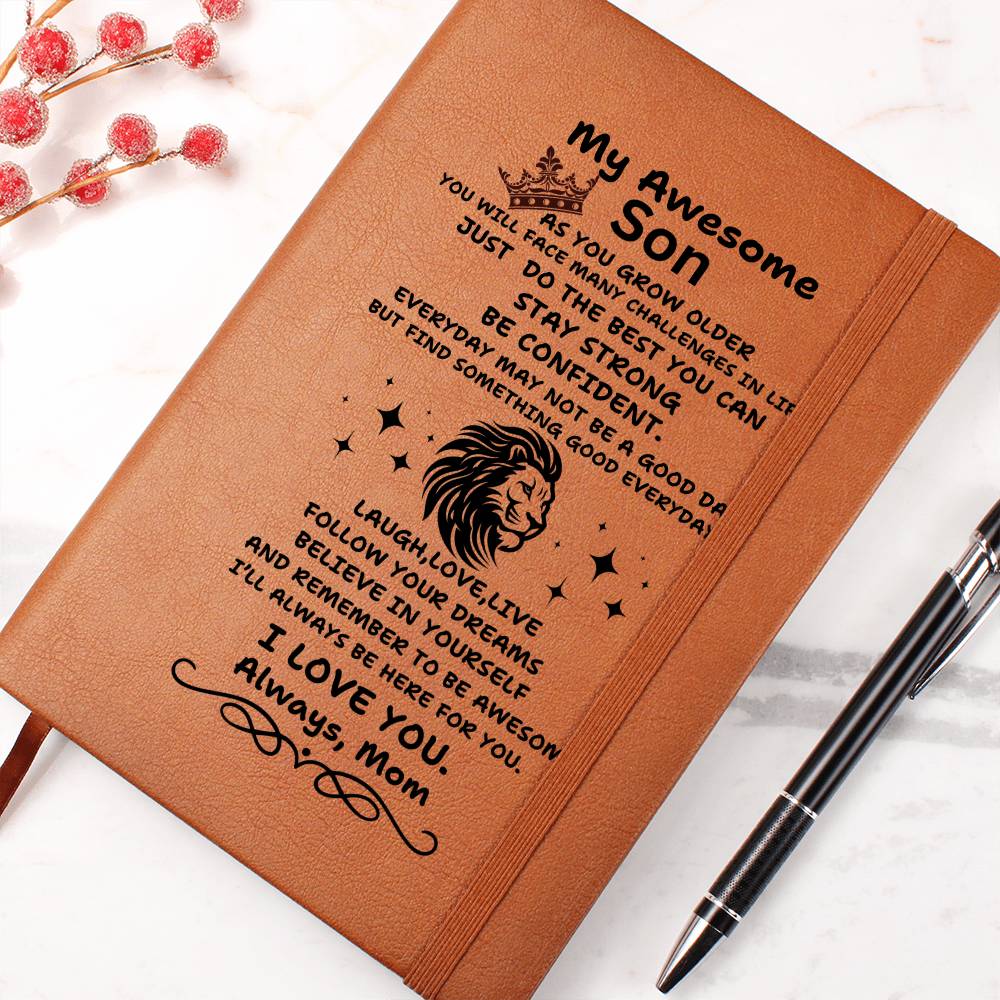 My Awesome
Son
AS YOU GROW OLDER
YOU WILL FACE MANY CHALLENGES IN LIF
JUST DO THE BEST YOU CAN
STAY STRONG
BE CONFIDENT.
EVERYDAY MAY NOT BE A GOOD DA
BUT FIND SOMETHING GOOD EVERYDAY
LAUGH,LOVE,LIVE
FOLLOW YOUR DREAMS
BELIEVE IN YOURSELF
AND REMEMBER TO BE AWESOM
I'LL ALWAYS BE HERE FOR YOU.
I LOVE YOU.
Always, Mom